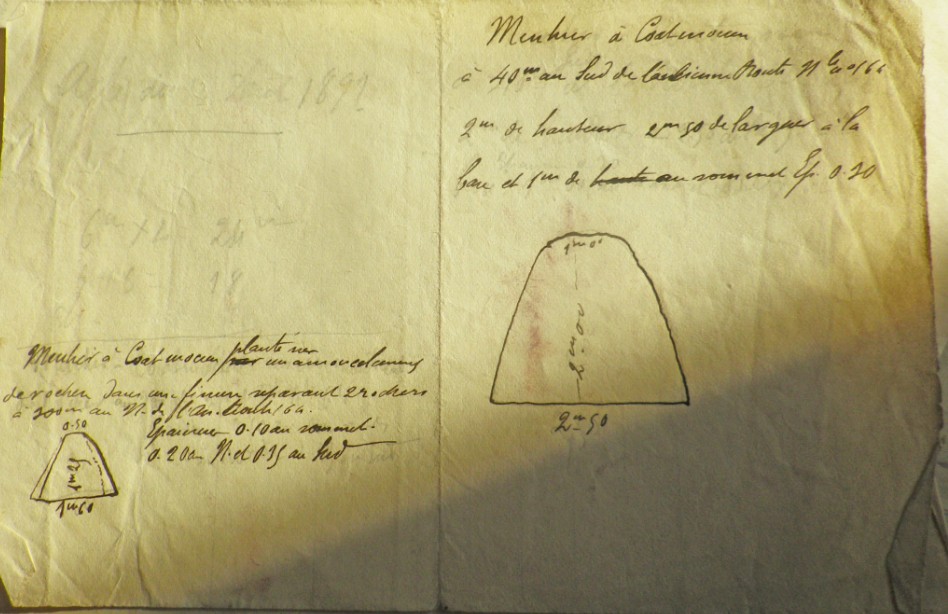 Menhir à Coatmocun
à 40m au Sud de l'ancienne Route Nle n° 164
2m de hauteur 2m50 de largeur à la
base et 1m de haute au sommet Ep. 0.30
1m00
2m00
2m50
1892
6m × 4 = 24m
18
Menhir à Coatmocun planté sur
un amoncelement
de rocher dans une fissure séparant 2 rochers
à 300m au N. de l'An. Route 164.
Epaisseur 0.10 au sommet.
0.20 au N. et 0.35 au Sud
0.50
1m25
1m60